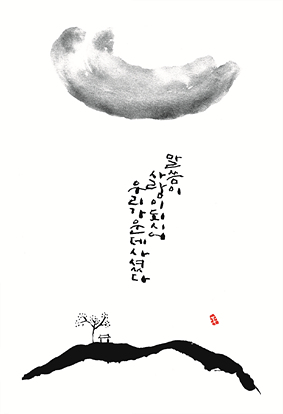 말씀이
사랑이되시어
우리가운데사셨다